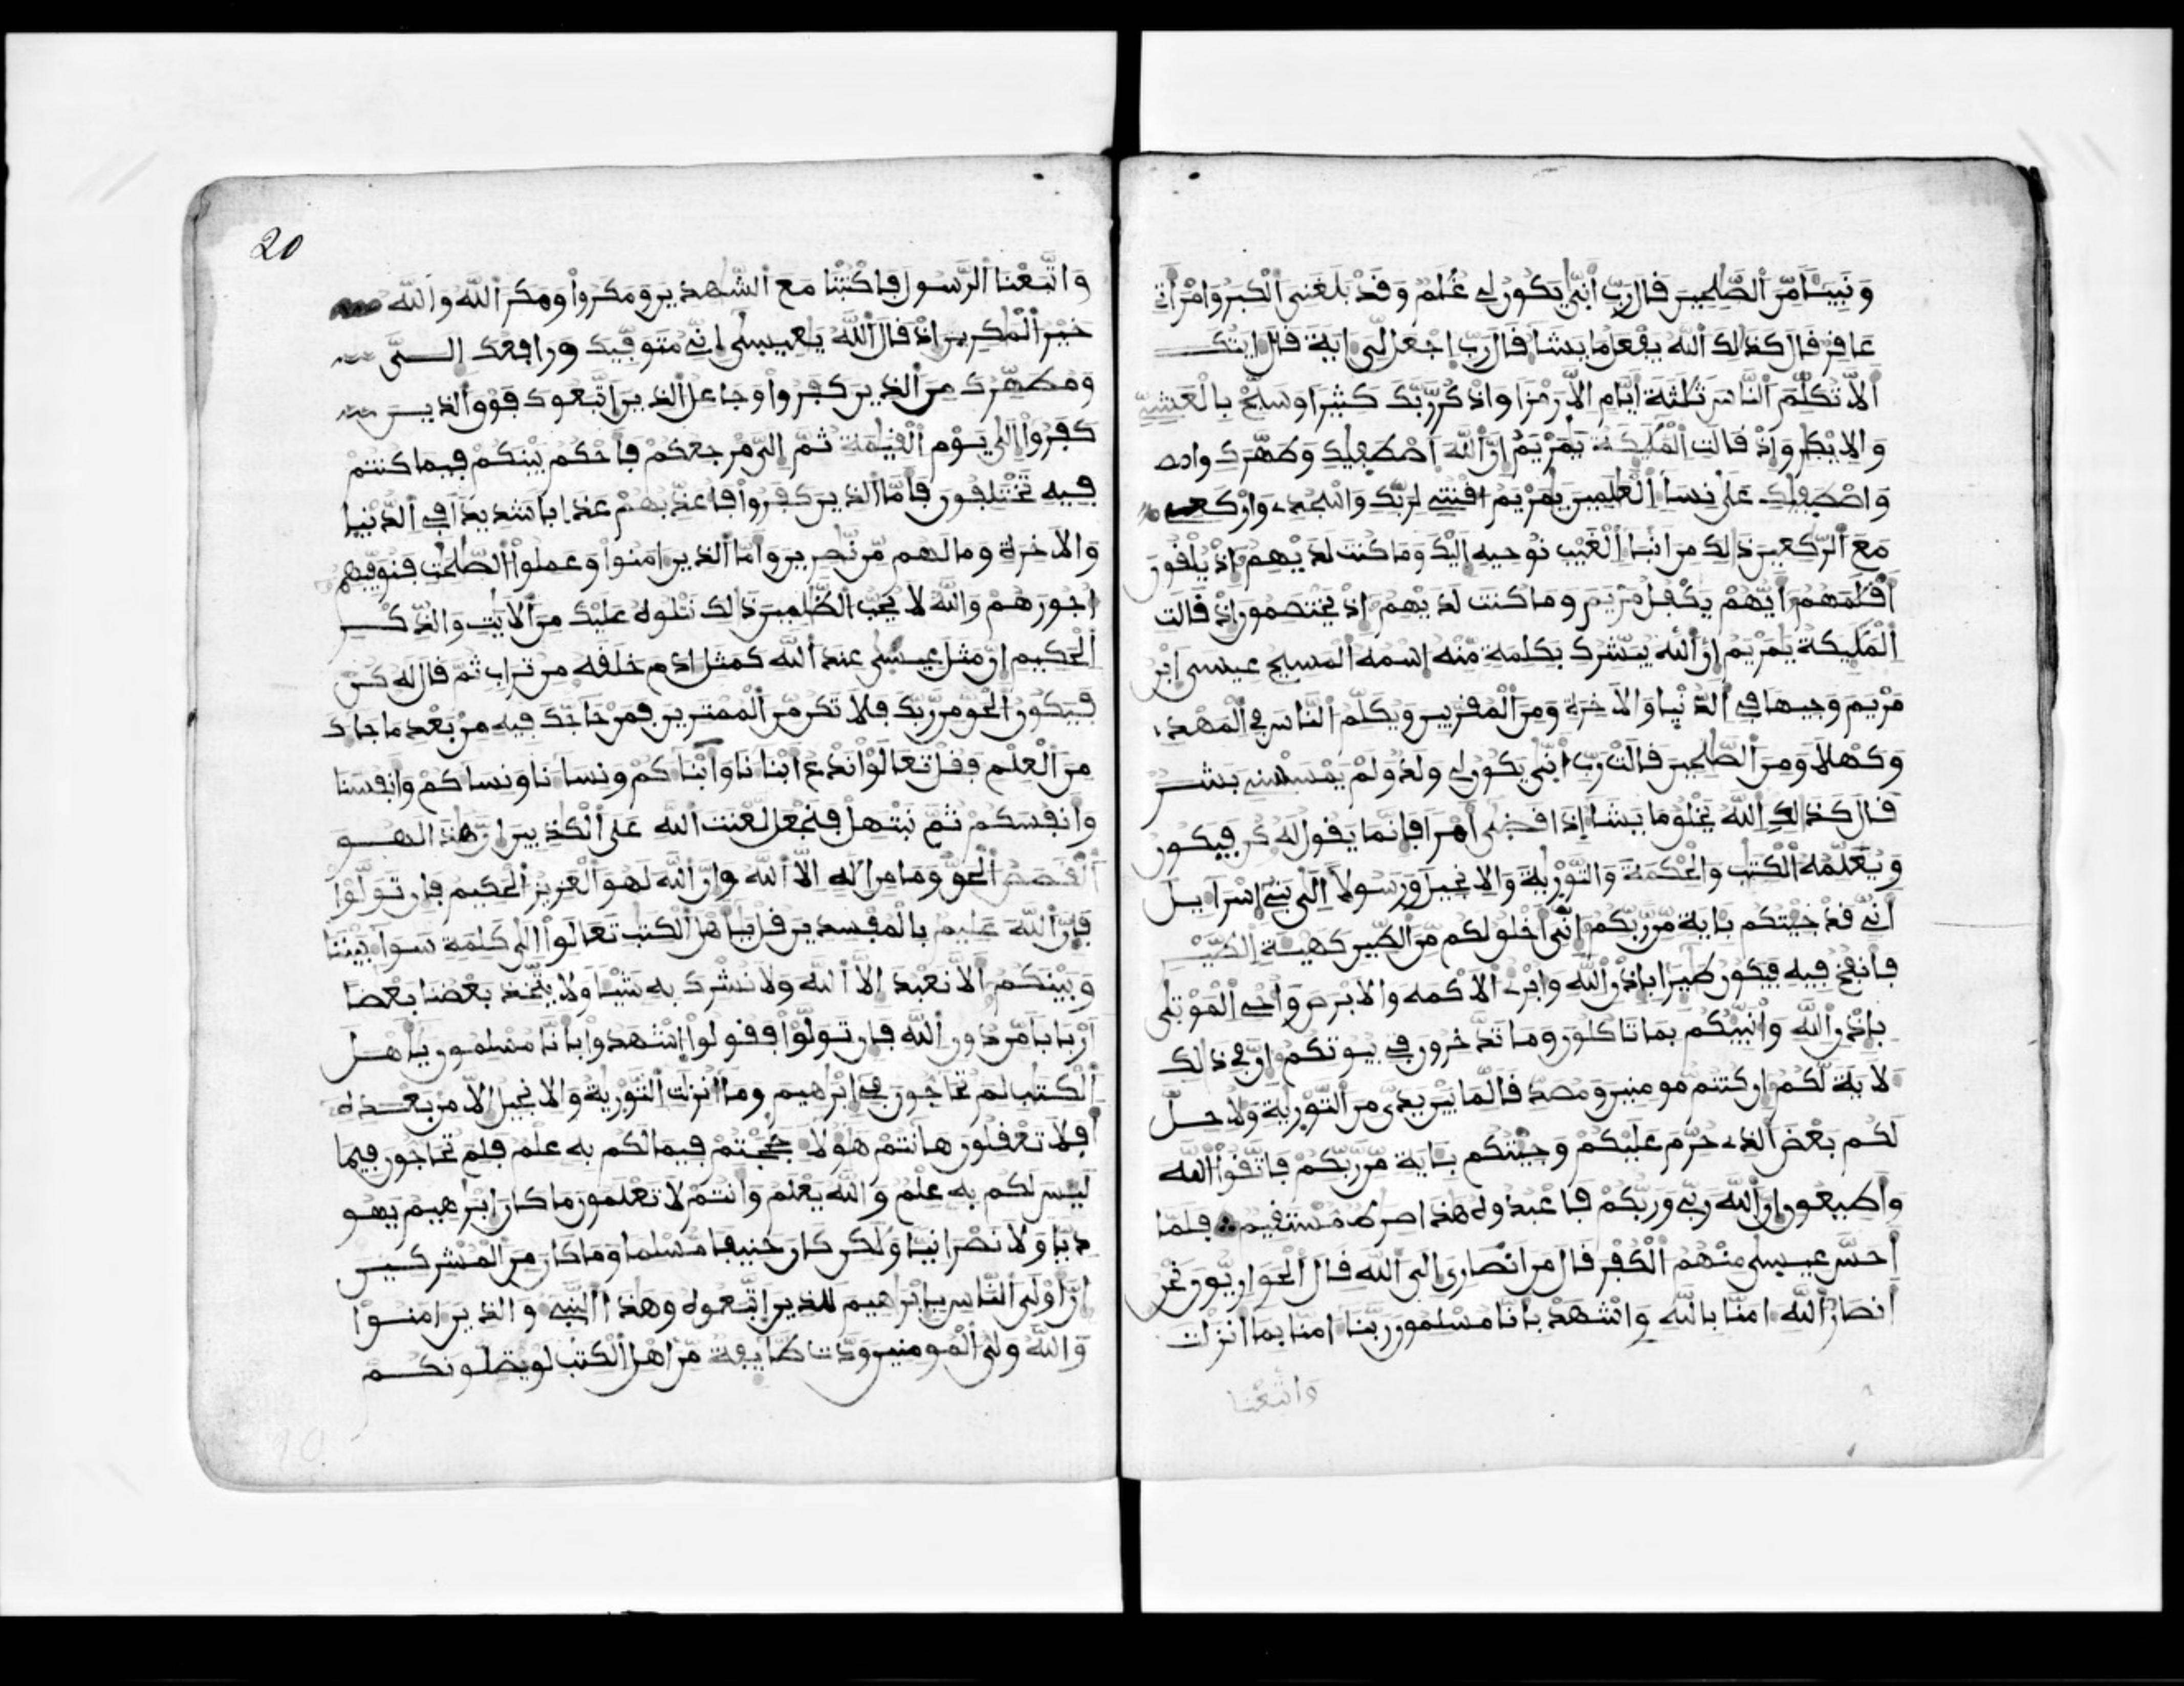 ونبيئا من الصلحين قال رب انى يكون لي غلم وقد بلغني الكبر وامراتي
عافر قال كذلك الله يفعل ما يشا قال رب اجعل لي اية قال ايتك
الا تكلم الناس ثلثة ايام الا رمزا واذكر ربك كثيرا وسبح بالعشي
والابكر واذ قالت المليكة يمريم ان الله اصطفيك وطهرك
واصطفيك على نسا العلمين يمريم اقنتي لربك واسجدي واركعي
مع الركعين ذلك من انبا الغيب نوحيه اليك وما كنت لديهم اذ يلقون
اقلمهم ايهم يكفل مريم وما كنت لديهم اذ يختصمون اذ قالت
المليكة يمريم ان الله يبشرك بكلمة منه اسمه المسيح عيسى ابن
مريم وجيها في الدنيا والاخرة ومن المقربين ويكلم الناس في المهد
وكهلا ومن الصلحين قالت رب انى يكون لي ولد ولم يمسسني بشر
قال كذلك الله يخلق ما يشا اذا قضى امرا فانما يقول له كن فيكون
ويعلمه الكتب والحكمة والتورية والانجيل ورسولا الى بني اسرايل
اني قد جيتكم باية من ربكم اني اخلق لكم من الطين كهيئة الطير
فانفخ فيه فيكون طيرا باذن الله وابرئ الاكمه والابرص واحي الموتى
باذن الله وانبيكم بما تاكلون وما تدخرون في بيوتكم ان في ذلك
لاية لكم ان كنتم مومنين ومصدقا لما بين يدي من التورية ولاحل
لكم بعض الذي حرم عليكم وجيتكم باية من ربكم فاتقوا الله
واطيعون ان الله ربي وربكم فاعبدوه هذا صرط مستقيم فلما
احس عيسى منهم الكفر قال من انصاري الى الله قال الحواريون نحن
انصار الله امنا بالله واشهد بانا مسلمون ربنا امنا بما انزلت
واتبعنا
20
واتبعنا الرسول فاكتبنا مع الشهدين ومكروا ومكر الله والله
خير المكرين اذ قال الله يعيسى اني متوفيك ورافعك الى
ومطهرك من الذين كفروا وجاعل الذين اتبعوك فوق الذين
كفروا الى يوم القيمة ثم الي مرجعكم فاحكم بينكم فيما كنتم
فيه تختلفون فاما الذين كفروا فاعذبهم عذابا شديدا في الدنيا
والاخرة وما لهم من نصرين واما الذين امنوا وعملوا الصلحت فنوفيهم
اجورهم والله لا يحب الظلمين ذلك نتلوه عليك من الايت والذكر
الحكيم ان مثل عيسى عند الله كمثل ادم خلقه من تراب ثم قال له كن
فيكون الحق من ربك فلا تكن من الممترين فمن حاجك فيه من بعد ما جاك
من العلم فقل تعالوا ندع ابنانا وابناكم ونسانا ونساكم وانفسنا
وانفسكم ثم نبتهل فنجعل لعنت الله على الكذبين ان هذا لهو
القصص الحق وما من اله الا الله وان الله لهو العزيز الحكيم فان تولوا
فان الله عليم بالمفسدين قل ياهل الكتب تعالوا الى كلمة سوا بيننا
وبينكم الا نعبد الا الله ولا نشرك به شيا ولا يتخذ بعضنا بعضا
اربابا من دون الله فان تولوا فقولوا اشهدوا بانا مسلمون ياهل
الكتب لم تحاجون في ابرهيم وما انزلت التورية والانجيل الا من بعده
افلا تعقلون هانتم هولا حججتم فيما لكم به علم فلم تحاجون فيما
ليس لكم به علم والله يعلم وانتم لا تعلمون ما كان ابرهيم يهو
ديا ولا نصرانيا ولكن كان حنيفا مسلما وما كان من المشركين
ان اولى الناس بابرهيم للذين اتبعوه وهذا النبي والذين امنوا
والله ولي المومنين ودت طايفة من اهل الكتب لو يضلونكم